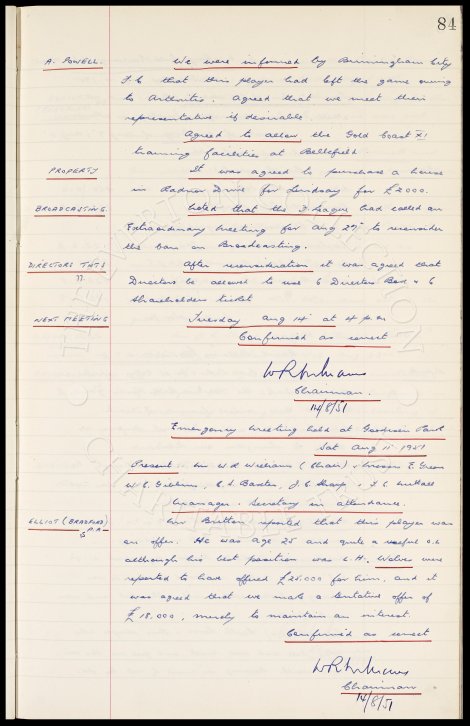 84
A. POWELL. We were informed by Birmingham City
F.C that this player had left the game owing
to Arthritis. Agreed that we meet their
representative if desirable.
Agreed to allow the Gold Coast XI
training facilities at Bellefield.
PROPERTY It was agreed to purchase a house
in Radnor Drive for Lindsay for £2000.
BROADCASTING. Noted that the F. League had called an
Extraordinary meeting for Aug 27th to reconsider
the ban on Broadcasting.
DIRECTORS TKTS After reconsideration it was agreed that
Directors be allowed to use 6 Directors Box & 6
Shareholders ticket
NEXT MEETING Tuesday Aug 14th at 4 p.m
Confirmed as correct
W R Williams
Chairman.
14/8/51
Emergency meeting held at Goodison Park
Sat Aug 11th 1951
Present Mr W.R. Williams (Chair) & Messrs E. Green
W.C. Gibbins, C.S. Baxter, J.C. Sharp &
Manager & Secretary in attendance.
ELLIOT (BRADFORD) P.A. Mr Britton reported that this player was
on offer. He was age 25 and quite a useful
although his best position was L.H. Wolves were
reported to have offered £25.000 for him, and it
was agreed that we make a tentative offer of
£18,000, merely to maintain an interest.
Confirmed as correct
W R Williams
Chairman
14/8/51